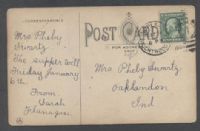 CORRESPONDENCE
POST CARD
FOR ADDRESS
Mrs Pheby
Swartz
The supper will
Friday January
6th
From
Sarah
Flanagan
Mrs Pheby Swartz
Oaklandon
Ind